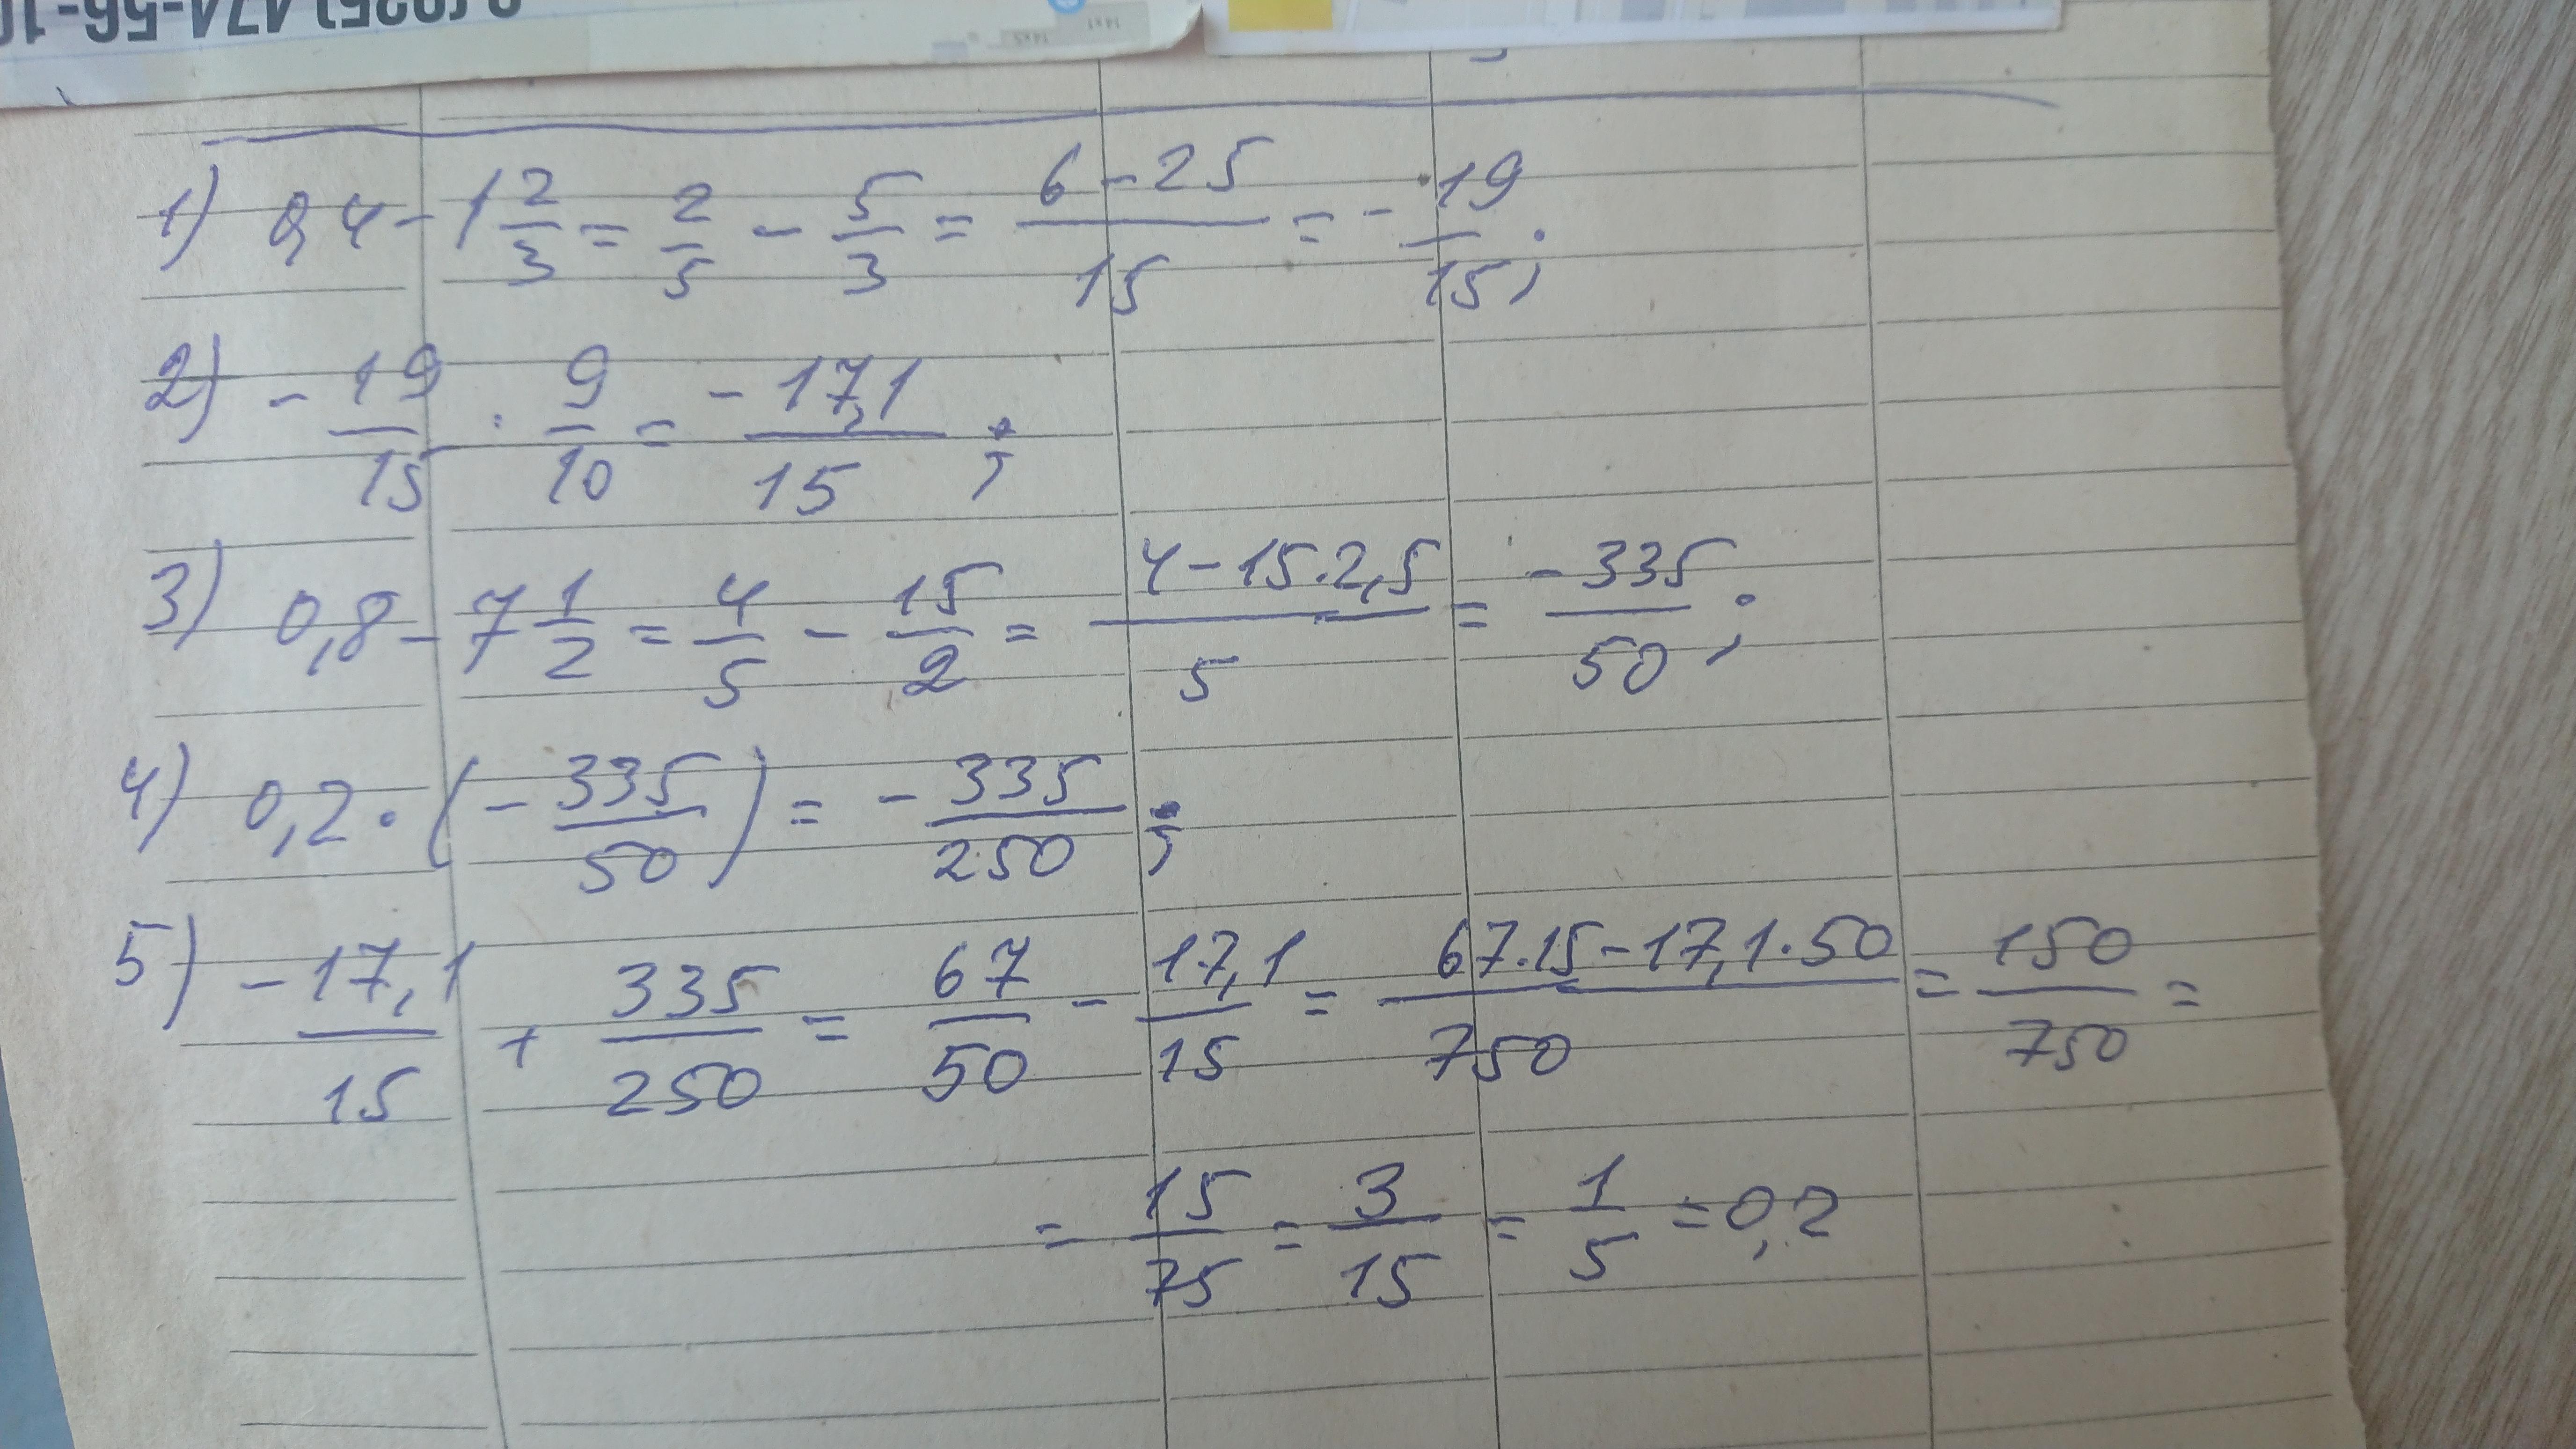 8 (925) 474-56-10
1) 0,4 - 1 2/3 = 2/5 - 5/3 = (6 - 25)/15 = - 19/15;
2) - 19/15 · 9/10 = - 17,1/15;
3) 0,8 - 7 1/2 = 4/5 - 15/2 = (4 - 15 · 2,5)/5 = - 335/50;
4) 0,2 · (- 335/50) = - 335/250;
5) - 17,1/15 + 335/250 = 67/50 - 17,1/15 = (67 · 15 - 17,1 · 50)/750 = 150/750 =
= 15/75 = 3/15 = 1/5 = 0,2